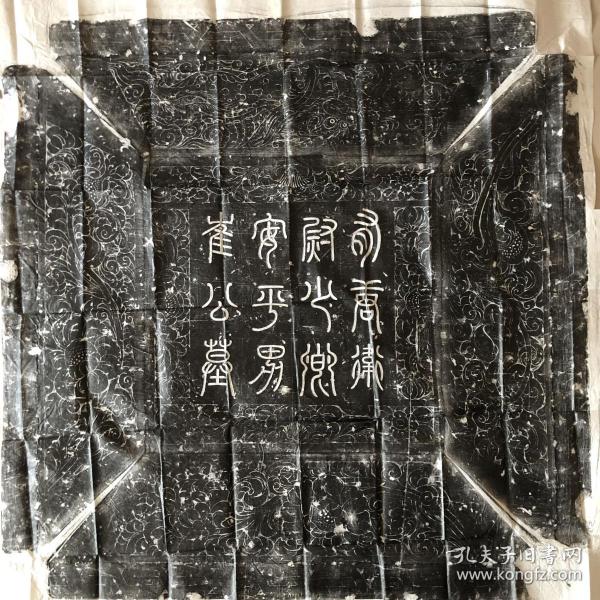 有唐衛
尉少卿
安平男
崔公墓
孔夫子旧书网
www.kongfz.com